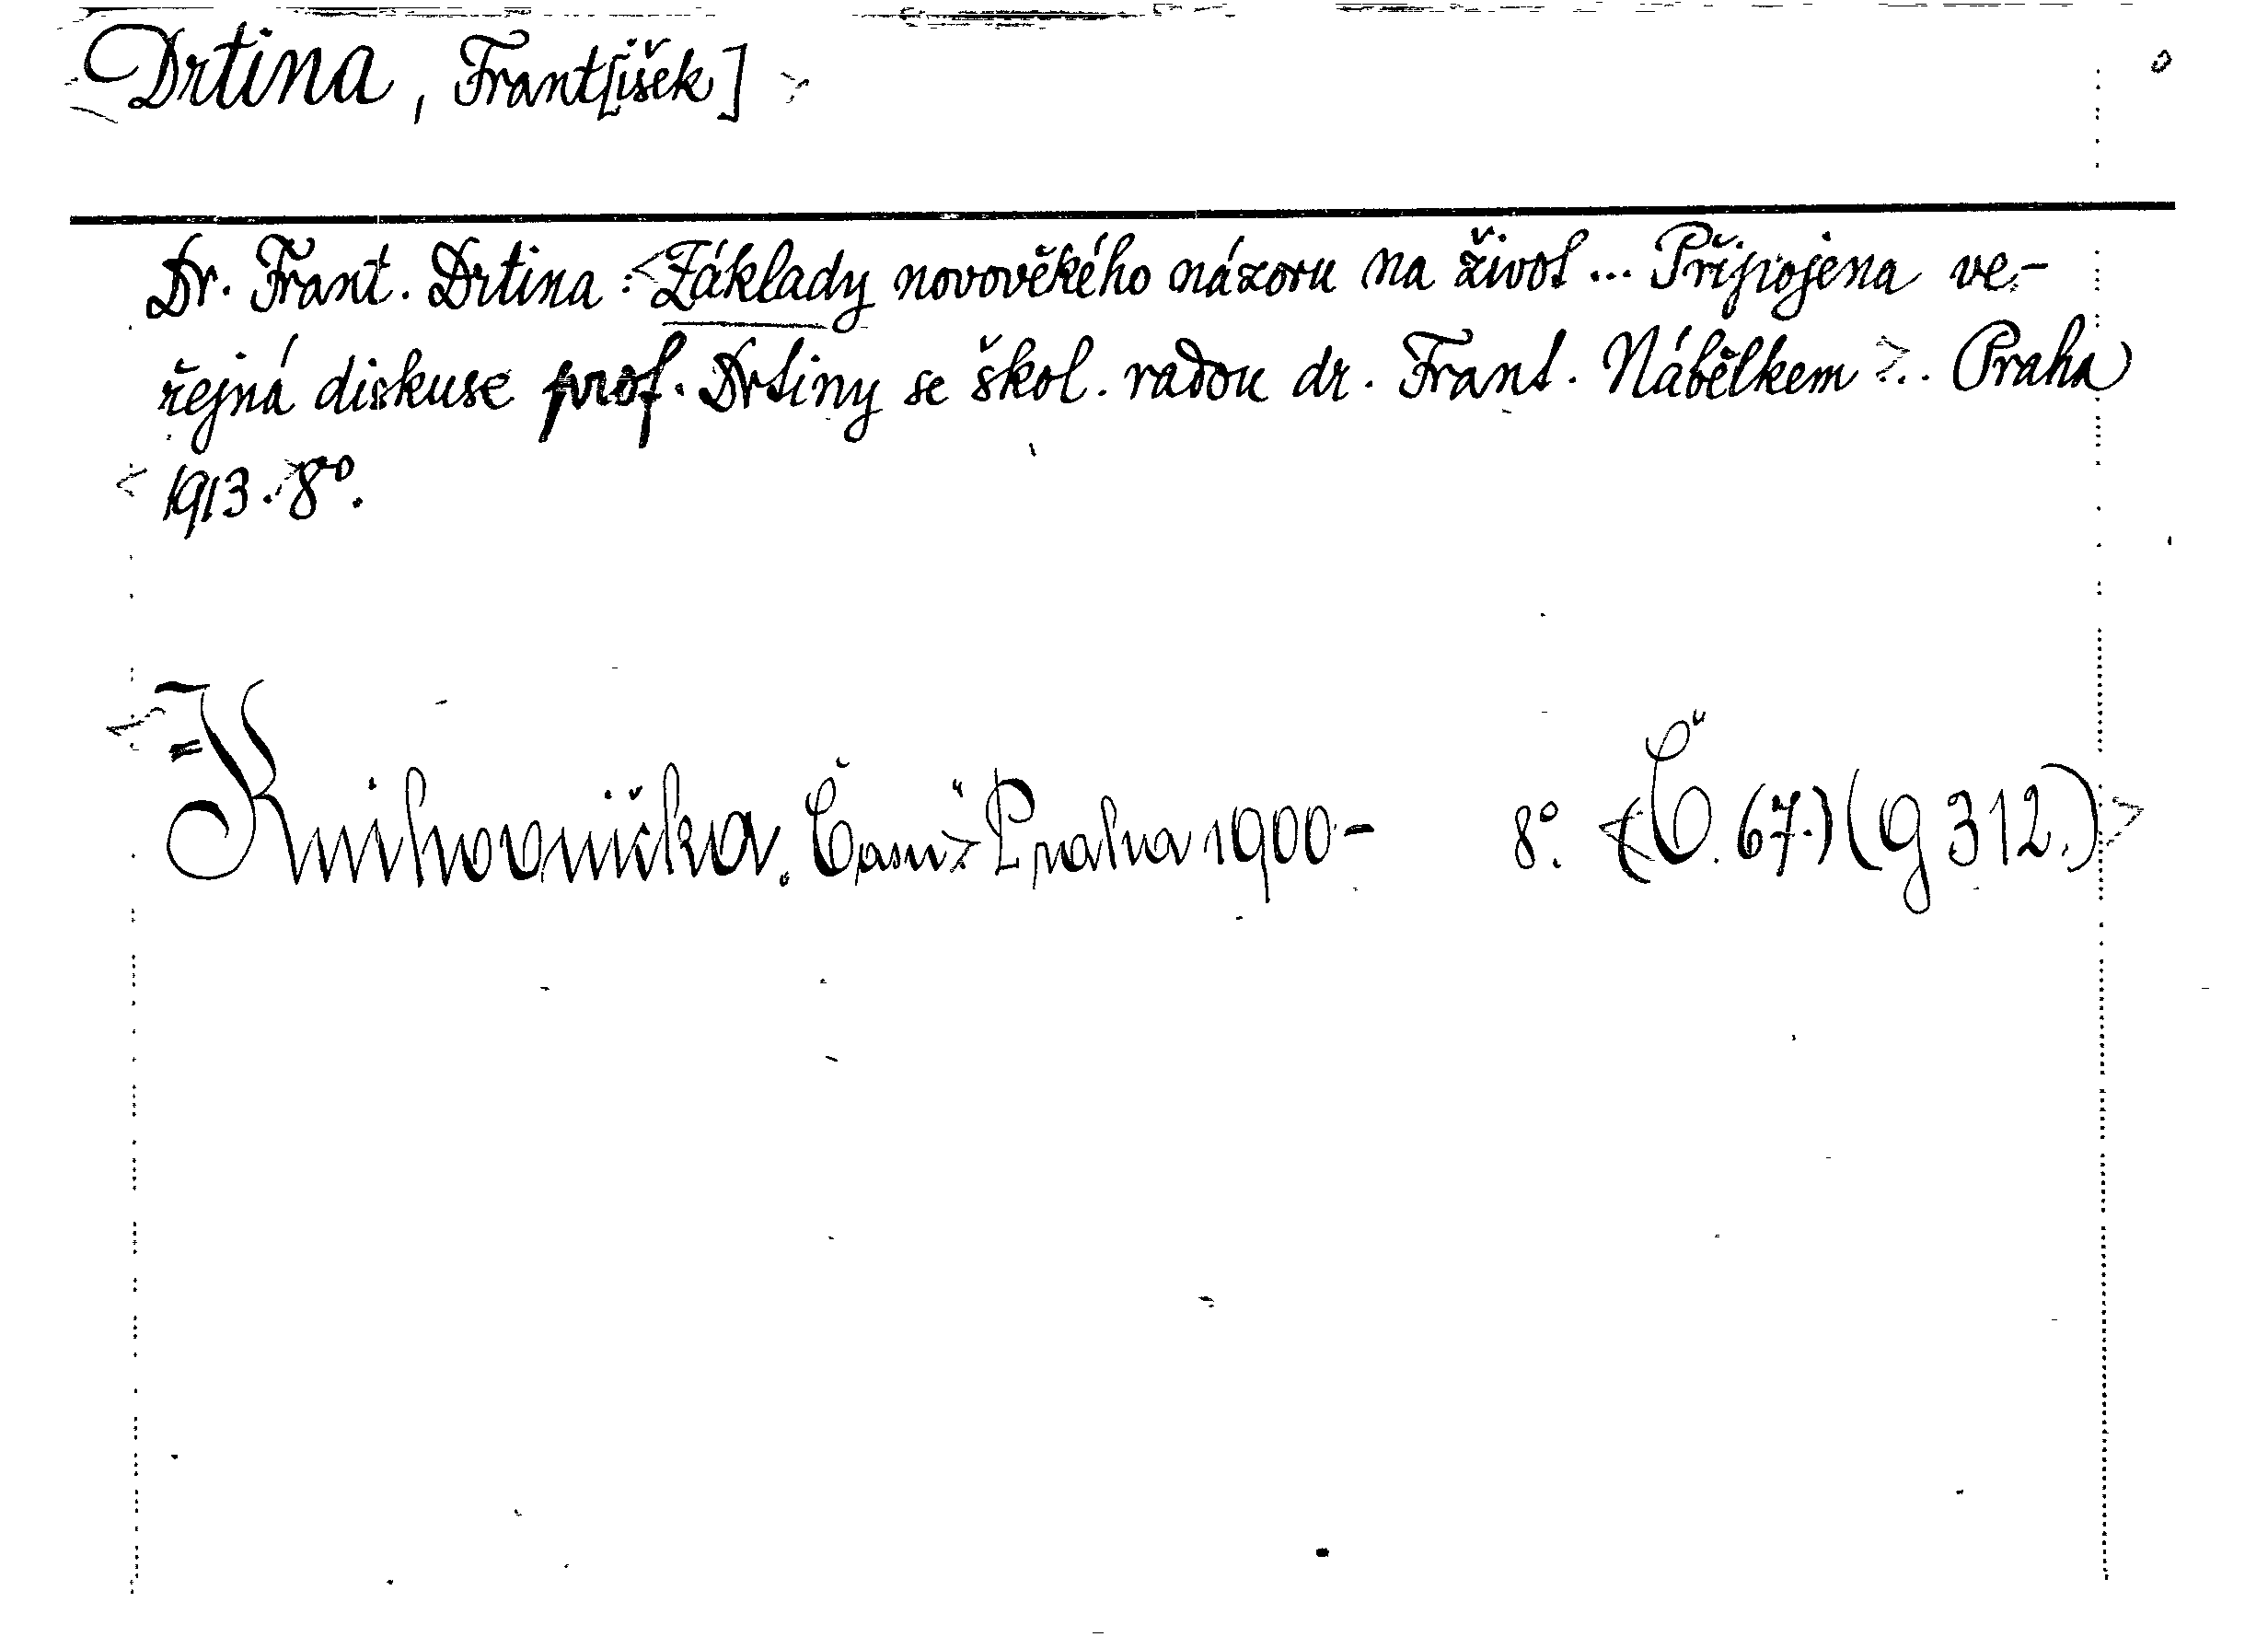 Drtina, Frant[išek]
Dr. Frant. Drtina: <Základy novověkého názoru na život ... Připojena ve-
řejná diskuse prof. Drtiny se škol. radou dr. Frant. Nábělkem>... Praha
<1913.> 8°.
<= Knihovnička. Času> Praha 1900- 8°. <(Č. 67.) (g 312.)>